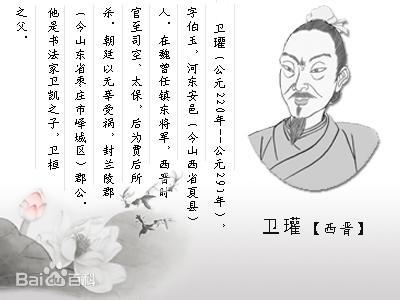 卫瓘（公元220年--公元291年），
字伯玉。河东安邑（今山西省夏县）
人。在魏曾任镇东将军，西晋时
官至司空、太保，后为贾后所
杀。朝廷以无辜受祸，封兰陵郡
（今山东省枣庄市峄城区）郡公。
他是书法家卫凯之子，卫桓
之父。
卫瓘【西晋】
Bai百科